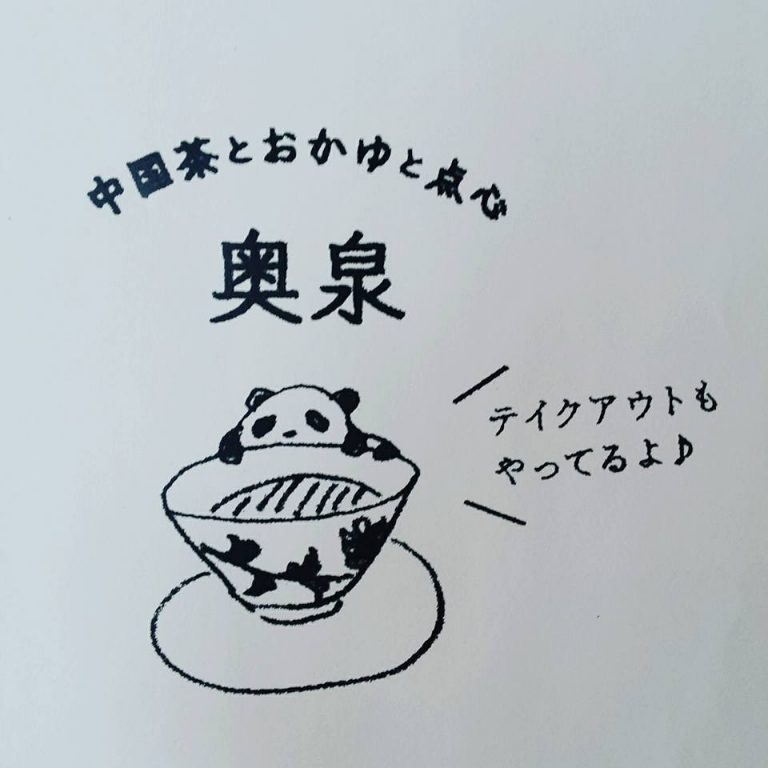 中国茶とおかゆと点心
奥泉
テイクアウトも
やってるよ♪